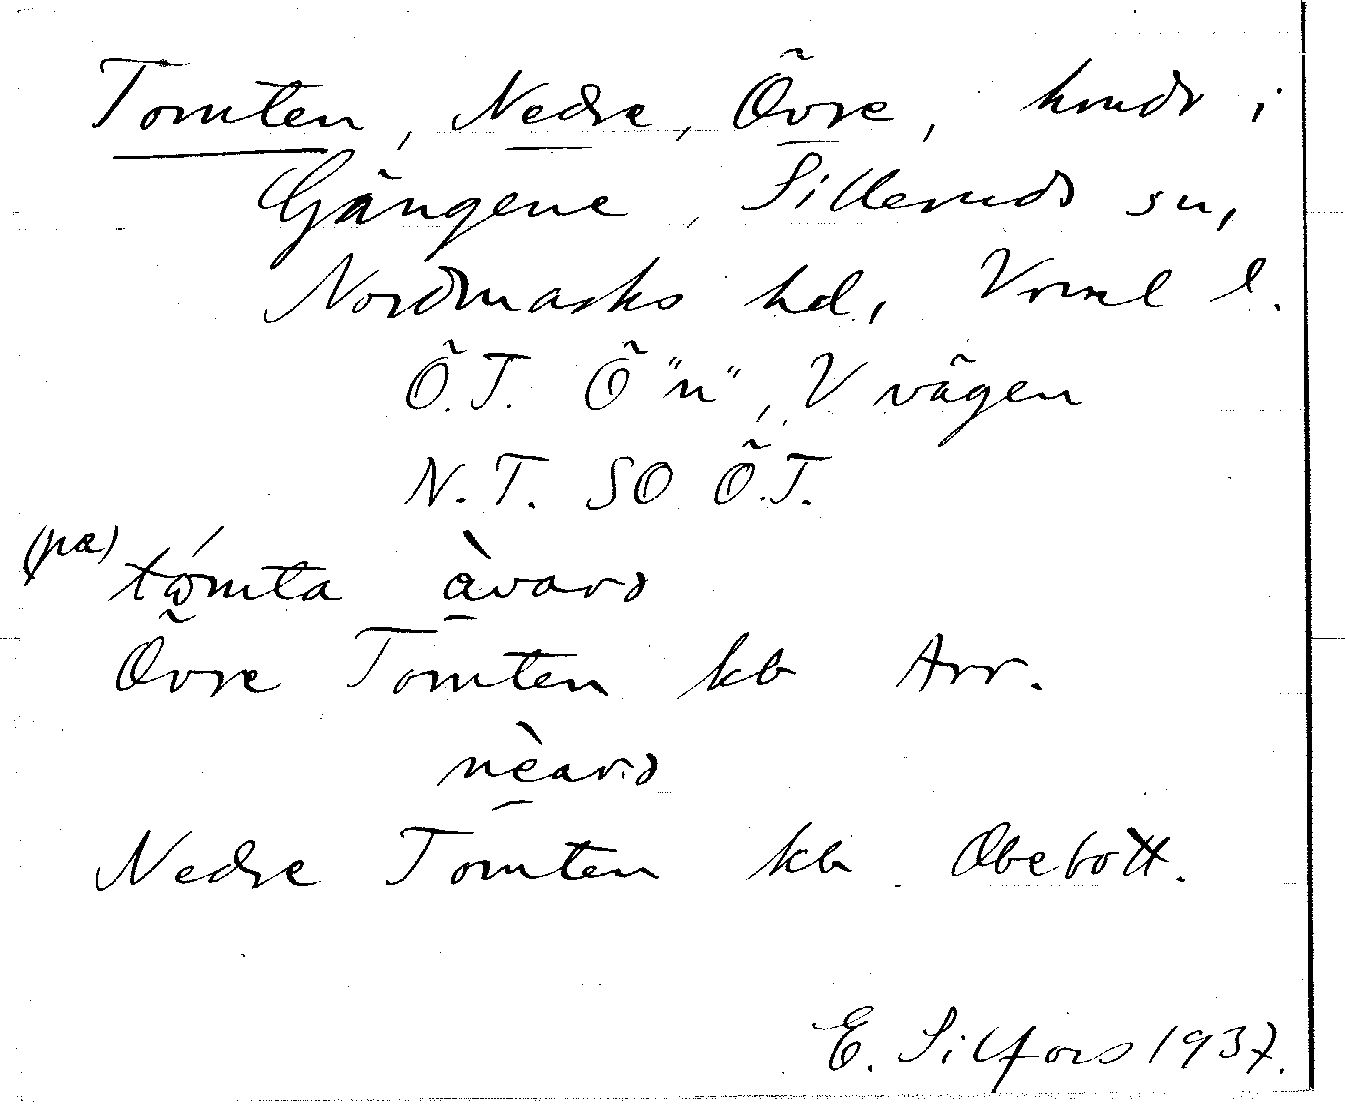 Tomten, Nedre, Övre, hmdr i
Gängene, Silleruds sn,
Nordmarks hd, Vrml l.
Ö.T. Ö "n", V vägen
N.T. SO Ö.T.
(pa) tǫ́mta àvarə
Övre Tomten kb Arr.
nèarə
Nedre Tomten kb Obebott.
E. Silfors 1937.